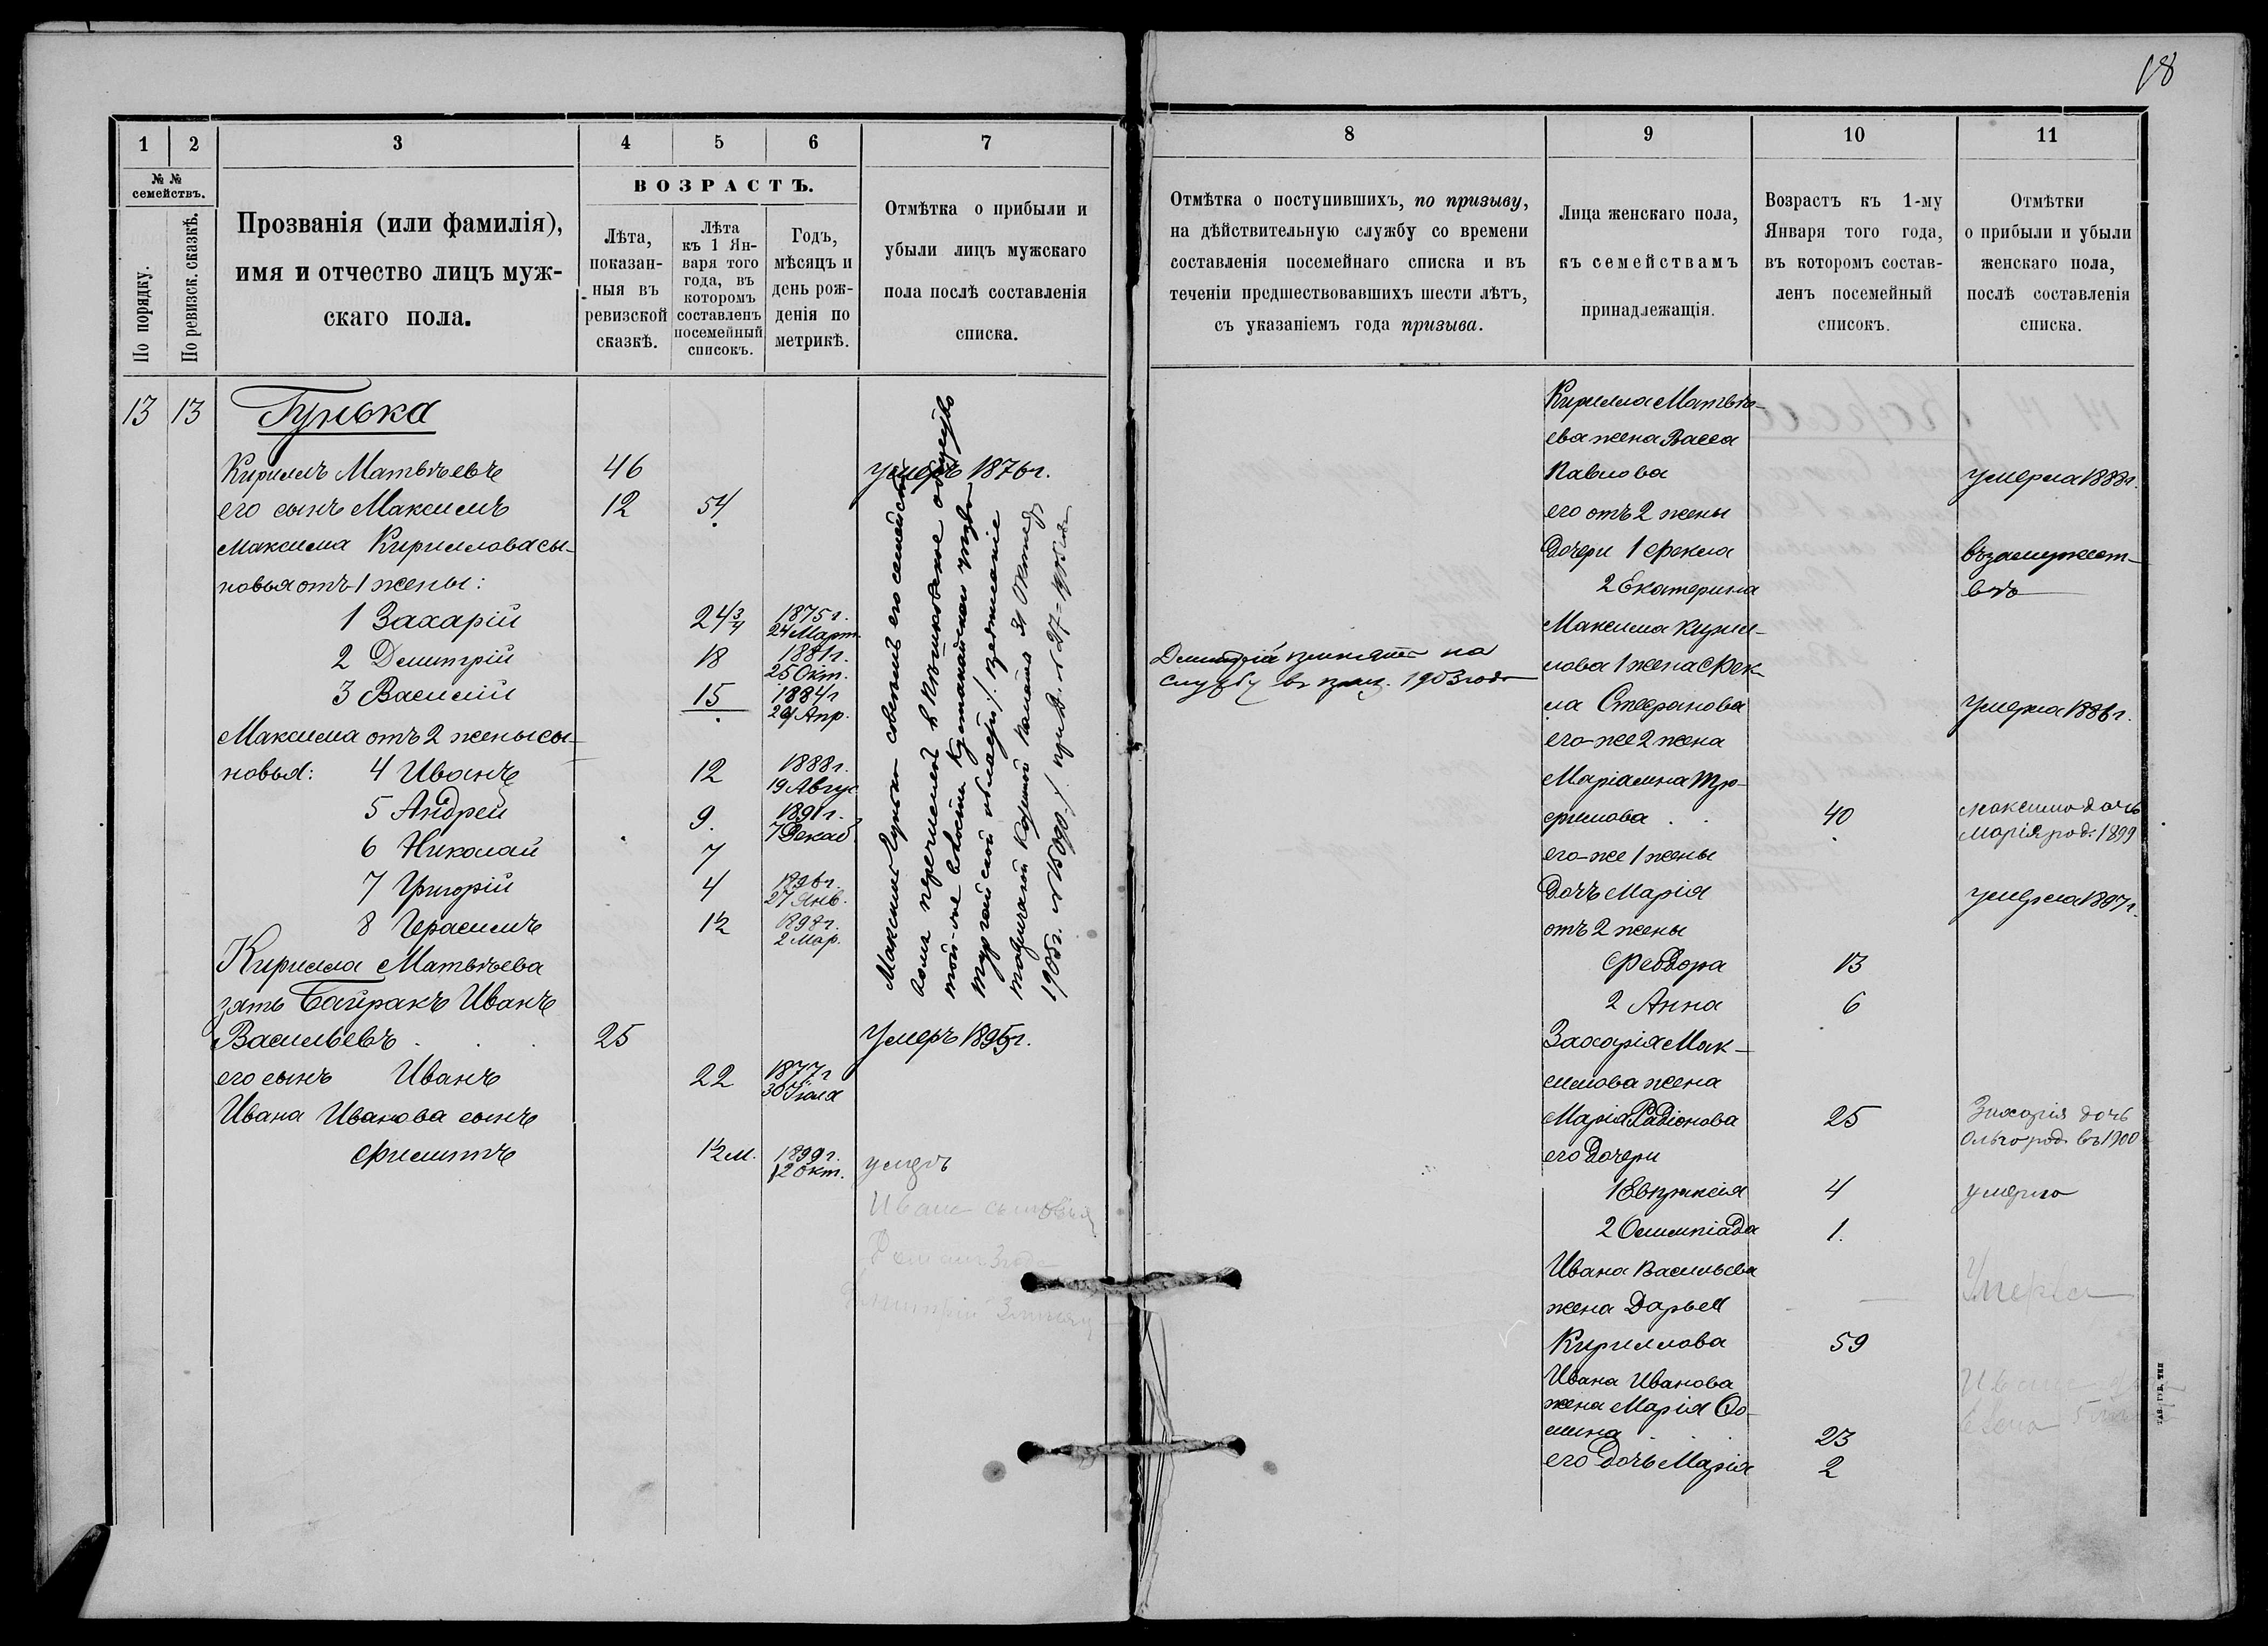 18
1 2 3 4 5 6 7
№ №
семействъ.
По порядку.
По ревизск. сказкѣ.
Прозванія (или фамилія),
имя и отчество лицъ муж-
скаго пола.
ВОЗРАСТЪ.
Лѣта,
показан-
ныя въ
ревизской
сказкѣ.
Лѣта
къ 1 Ян-
варя того
года, въ
которомъ
составленъ
посемейный
списокъ.
Годъ,
мѣсяцъ и
день рож-
денія по
метрикѣ.
Отмѣтка о прибыли и
убыли лицъ мужскаго
пола послѣ составленія
списка.
13 13 Гунька
Кириллъ Матвѣевъ 46 умеръ 1876 г.
его сынъ Максимъ 12 54
Максима Кириллова сы-
новья отъ 1 жены:
1 Захарій 24 3/4 1875 г. 24 Март.
2 Димитрій 18 1881 г. 25 Окт.
3 Василій 15 1884 г. Апр.
Максима отъ 2 жены сы-
новья: 4 Иванъ 12 1888 г. 19 Авгус.
5 Андрей 9. 1891 г. 7 Декаб.
6 Николай 7
7 Григорій 4 1896 г. 27 Янв.
8 Герасимъ 1½ 1898 г. 2 Мар.
Кирилла Матвѣева
зять Байракъ Иванъ
Васильевъ 25 Умеръ 1895 г.
его сынъ Иванъ 22 1877 г. 30 Іюля
Ивана Иванова сынъ
Филиппъ 1½ м. 1899 г. 12 Окт. умеръ
Максимъ Гунька съ своимъ семейст
перечисленъ въ общество
той-же волости Кустанайскаго уѣзда
Тургайской области
Казенной Палаты 31 Октяб
Ивана сыновья
8 9 10 11
Отмѣтка о поступившихъ, по призыву,
на дѣйствительную службу со времени
составленія посемейнаго списка и въ
теченіи предшествовавшихъ шести лѣтъ,
съ указаніемъ года призыва.
Лица женскаго пола,
къ семействамъ
принадлежащія.
Возрастъ къ 1-му
Января того года,
въ которомъ состав-
ленъ посемейный
списокъ.
Отмѣтки
о прибыли и убыли
женскаго пола,
послѣ составленія
списка.
Димитрій принятъ на
службу въ приз. 1903 года
Кирилла Матвѣ-
ева жена Васса
Павлова умерла 1888 г.
его отъ 2 жены
Дочери 1 Фекла въ замужест-
2 Екатерина вѣ
Максима Кирил-
лова 1 жена Фек-
ла Стефанова умерла 1886 г.
его-же 2 жена
Маріамна Тро-
фимова 40 Максима дочь
Марія род. 1899
его-же 1 жены
дочь Марія умерла 1897 г.
отъ 2 жены
Феодора 13
2 Анна 6
Захарія Мак-
симова жена
Марія Радіонова 25 Захарія дочь
Ольга род. въ 1900
его дочери
1 Евпраксія 4 умерла
2 Олимпіада 1.
Ивана Васильева
жена Дарья Умерла
Кириллова 59
Ивана Иванова
жена Марія Ѳо-
мина 23
его дочь Марія 2
ТАВ. ГУБ. ТИП